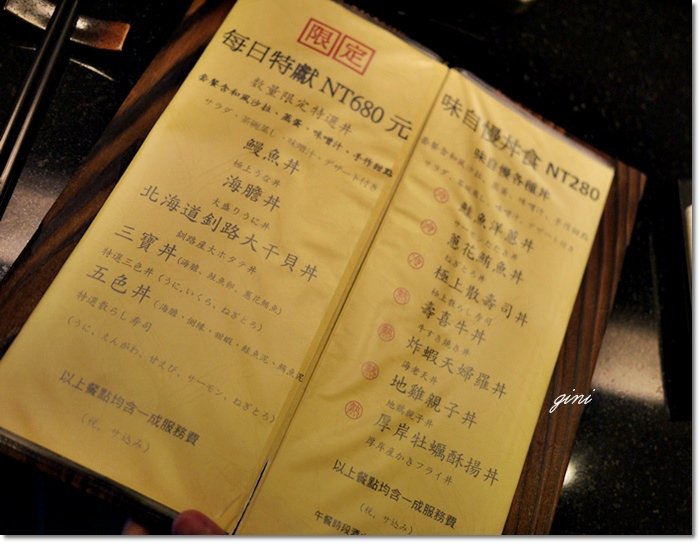 限定
每日特獻 NT680 元
數量限定特選丼
套餐含和風沙拉、蒸蛋、味噌汁、手作甜點
サラダ・茶碗蒸し・味噌汁・デザート付き
鰻魚丼
極上うな丼
海膽丼
大盛りうに丼
北海道釧路大干貝丼
釧路產大ホタテ丼
三寶丼(海膽、鮭魚卵、蔥花鮪魚)
特選三色丼 (うに,いくら、ねぎとろ)
五色丼
特選散らし寿司
(うに、えんがわ、甘えび、サーモン、ねぎとろ)
以上餐點均含一成服務費
(税、サ込み)
味自慢丼食 NT280
味自慢各種丼
套餐含和風沙拉、蒸蛋、味噌汁、手作甜點
サラダ・茶碗蒸し・味噌汁・デザート付き
鮭魚洋蔥丼
蔥花鮪魚丼
ねぎとろ丼
極上散壽司丼
極上散らし寿司
熱 壽喜牛丼
牛すき焼き丼
熱 炸蝦天婦羅丼
海老天丼
熱 地雞親子丼
地鶏親子丼
熱 厚岸牡蠣酥揚丼
厚岸産かきフライ丼
以上餐點均含一成服務費
(税、サ込み)
午餐時段
gini